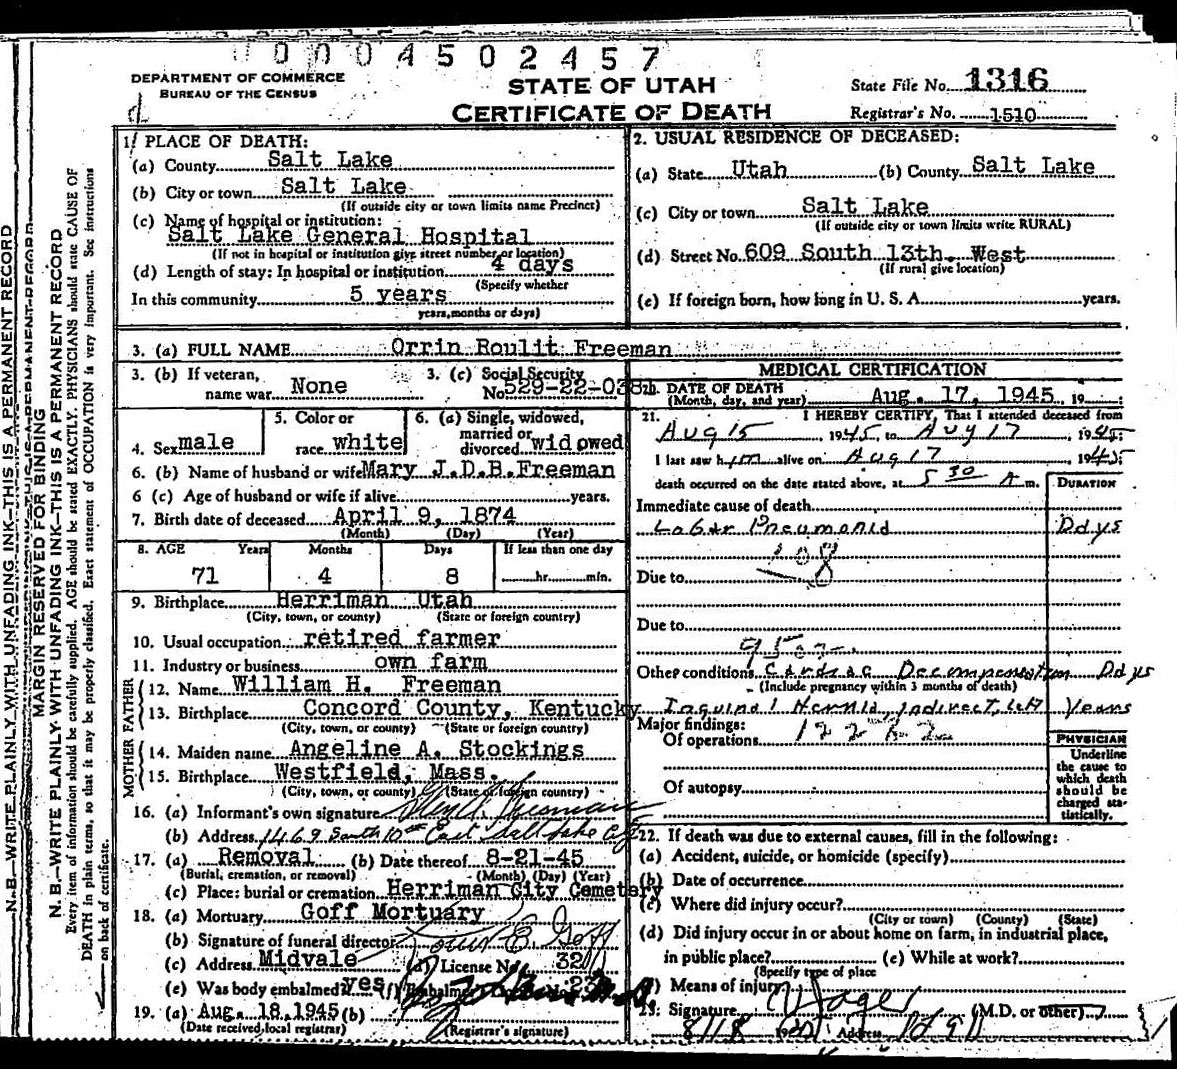 0004502457
DEPARTMENT OF COMMERCE
BUREAU OF THE CENSUS
STATE OF UTAH
CERTIFICATE OF DEATH
State File No. 1316
Registrar's No. 1510
1. PLACE OF DEATH:
(a) County Salt Lake
(b) City or town Salt Lake
(If outside city or town limits name Precinct)
(c) Name of hospital or institution:
Salt Lake General Hospital
(If not in hospital or institution give street number or location)
(d) Length of stay: In hospital or institution 4 days
(Specify whether
In this community 5 years
years, months or days)
2. USUAL RESIDENCE OF DECEASED:
(a) State Utah (b) County Salt Lake
(c) City or town Salt Lake
(If outside city or town limits write RURAL)
(d) Street No. 609 South 13th. West
(If rural give location)
(e) If foreign born, how long in U. S. A. years.
3. (a) FULL NAME Orrin Roulit Freeman
3. (b) If veteran, name war None
3. (c) Social Security No 529-22-038
4. Sex male
5. Color or race white
6. (a) Single, widowed, married or divorced widowed
6. (b) Name of husband or wife Mary J.D.B.Freeman
6 (c) Age of husband or wife if alive years.
7. Birth date of deceased April 9, 1874
(Month) (Day) (Year)
8. AGE Years Months Days If less than one day
71 4 8 hr. min.
9. Birthplace Herriman Utah
(City, town, or county) (State or foreign country)
10. Usual occupation retired farmer
11. Industry or business own farm
FATHER
12. Name William H. Freeman
13. Birthplace Concord County, Kentucky
(City, town, or county) (State or foreign country)
MOTHER
14. Maiden name Angeline A. Stockings
15. Birthplace Westfield, Mass.
(City, town, or county) (State or foreign country)
16. (a) Informant's own signature Freeman
(b) Address 1469 South 10th East Salt Lake City
17. (a) Removal (b) Date thereof 8-21-45
(Burial, cremation, or removal) (Month) (Day) (Year)
(c) Place: burial or cremation Herriman City Cemetery
18. (a) Mortuary Goff Mortuary
(b) Signature of funeral director Goff
(c) Address Midvale (d) License No. 32
(e) Was body embalmed? yes (f) Embalmer
19. (a) Aug. 18, 1945 (b)
(Date received local registrar) (Registrar's signature)
MEDICAL CERTIFICATION
20. DATE OF DEATH
(Month, day, and year) Aug. 17, 1945 19
21. I HEREBY CERTIFY, That I attended deceased from
Aug 15, 1945, to Aug 17 1945;
I last saw him alive on Aug 17, 1945;
death occurred on the date stated above, at 5 30 A m.
DURATION
Immediate cause of death
Lobar Pneumonia Days
108
Due to
Due to
Other conditions Cardiac Decompensation Days
(Include pregnancy within 3 months of death)
Inguinal Hernia, indirect, left Years
Major findings:
Of operations
Of autopsy
PHYSICIAN
Underline
the cause to
which death
should be
charged sta-
tistically.
22. If death was due to external causes, fill in the following:
(a) Accident, suicide, or homicide (specify)
(b) Date of occurrence
(c) Where did injury occur?
(City or town) (County) (State)
(d) Did injury occur in or about home on farm, in industrial place,
in public place? (e) While at work?
(Specify type of place
(f) Means of injury
23. Signature (M.D. or other)
8/18 Address
N.B.—WRITE PLAINLY WITH UNFADING INK—THIS IS A PERMANENT RECORD
MARGIN RESERVED FOR BINDING
N.B.—WRITE PLAINLY WITH UNFADING INK—THIS IS A PERMANENT RECORD
Every item of information should be carefully supplied. AGE should be stated EXACTLY. PHYSICIANS should state CAUSE OF
DEATH in plain terms, so that it may be properly classified. Exact statement of OCCUPATION is very important. See instructions
on back of certificate.